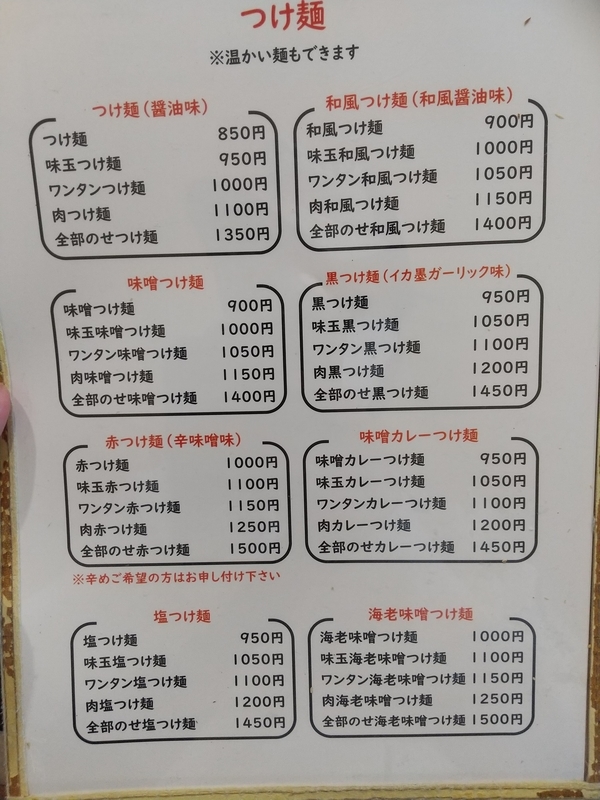 つけ麺
※温かい麺もできます
つけ麺（醤油味）
つけ麺 850円
味玉つけ麺 950円
ワンタンつけ麺 1000円
肉つけ麺 1100円
全部のせつけ麺 1350円
和風つけ麺（和風醤油味）
和風つけ麺 900円
味玉和風つけ麺 1000円
ワンタン和風つけ麺 1050円
肉和風つけ麺 1150円
全部のせ和風つけ麺 1400円
味噌つけ麺
味噌つけ麺 900円
味玉味噌つけ麺 1000円
ワンタン味噌つけ麺 1050円
肉味噌つけ麺 1150円
全部のせ味噌つけ麺 1400円
黒つけ麺（イカ墨ガーリック味）
黒つけ麺 950円
味玉黒つけ麺 1050円
ワンタン黒つけ麺 1100円
肉黒つけ麺 1200円
全部のせ黒つけ麺 1450円
赤つけ麺（辛味噌味）
赤つけ麺 1000円
味玉赤つけ麺 1100円
ワンタン赤つけ麺 1150円
肉赤つけ麺 1250円
全部のせ赤つけ麺 1500円
※辛めご希望の方はお申し付け下さい
味噌カレーつけ麺
味噌カレーつけ麺 950円
味玉カレーつけ麺 1050円
ワンタンカレーつけ麺 1100円
肉カレーつけ麺 1200円
全部のせカレーつけ麺 1450円
塩つけ麺
塩つけ麺 950円
味玉塩つけ麺 1050円
ワンタン塩つけ麺 1100円
肉塩つけ麺 1200円
全部のせ塩つけ麺 1450円
海老味噌つけ麺
海老味噌つけ麺 1000円
味玉海老味噌つけ麺 1100円
ワンタン海老味噌つけ麺 1150円
肉海老味噌つけ麺 1250円
全部のせ海老味噌つけ麺 1500円